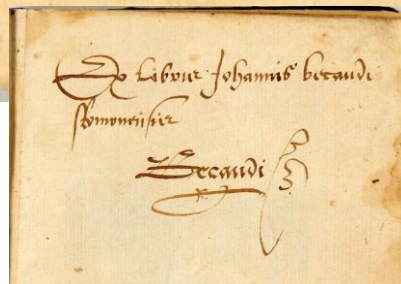 Ex libris Johannis becaudi
Romonensis
Becaudi